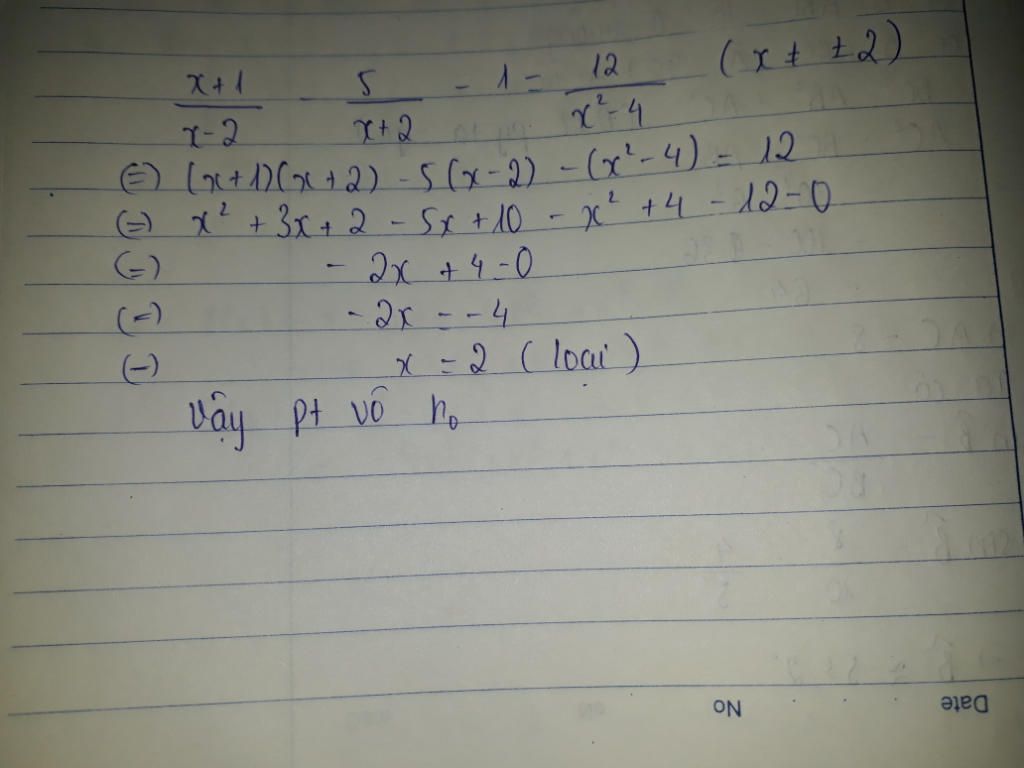 x+1/x-2 - 5/x+2 - 1 = 12/x²-4 (x ≠ ±2)
(=) (x+1)(x+2) - 5(x-2) - (x²-4) = 12
(=) x² + 3x + 2 - 5x + 10 - x² + 4 - 12 = 0
(=) - 2x + 4 = 0
(=) - 2x = - 4
(=) x = 2 (loại)
Vậy pt vô n₀
Date No